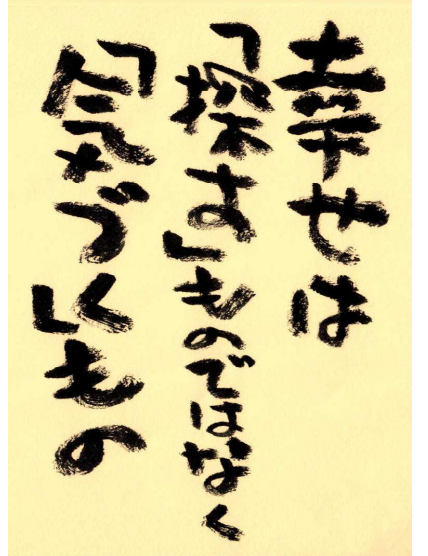 幸せは
「探す」ものではなく
「気づく」もの